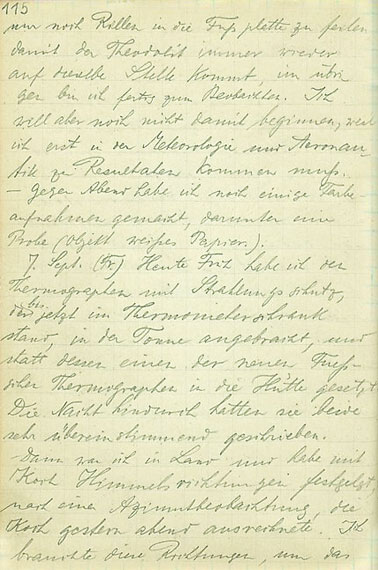 115
nur noch Rillen in die Fussplatte zu feilen
damit der Theodolit immer wieder
auf dieselbe Stelle kommt, im übri
gen bin ich fertig zum Beobachten. Ich
will aber noch nicht damit beginnen, weil
ich erst in der Meteorologie und Aeronau-
tik zu Resultaten kommen muss.
– Gegen Abend habe ich noch einige Farbe
aufnahmen gemacht, darunter eine
Probe (Objekt weißes Papier.).
7. Sept. (Fr.) Heute Früh habe ich den
Thermographen mit Strahlungsschutz,
der bis jetzt im Thermometerschrank
stand, in der Tonne angebracht, und
statt dessen einen der neuen Fuess-
schen Thermographen in die Hütte gesetzt
Die Nacht hindurch hatten sie beide
sehr übereinstimmend geschrieben.
Dann war ich in Land und habe mit
Koch Himmelsrichtungen festgelegt,
nach einer Azimutbeobachtung, die
Koch gestern abend ausrechnete. Ich
brauchte diese Richtungen, um das